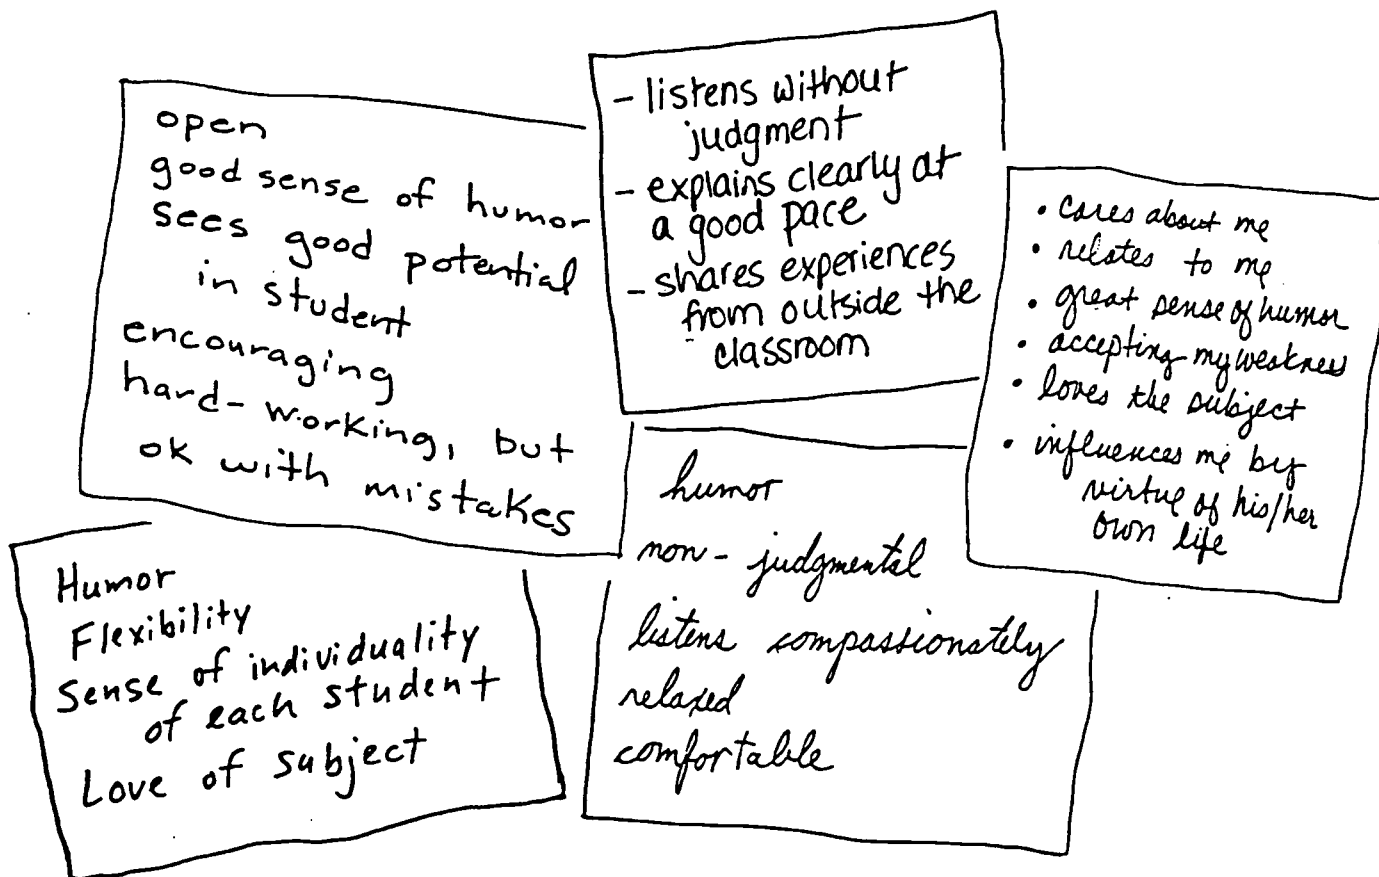 open
good sense of humor
sees good potential
in student
encouraging
hard-working, but
ok with mistakes
- listens without
judgment
- explains clearly at
a good pace
- shares experiences
from outside the
classroom
• cares about me
• relates to me
• great sense of humor
• accepting my weakness
• loves the subject
• influences me by
virtue of his/her
own life
Humor
Flexibility
Sense of individuality
of each student
Love of subject
humor
non-judgmental
listens compassionately
relaxed
comfortable